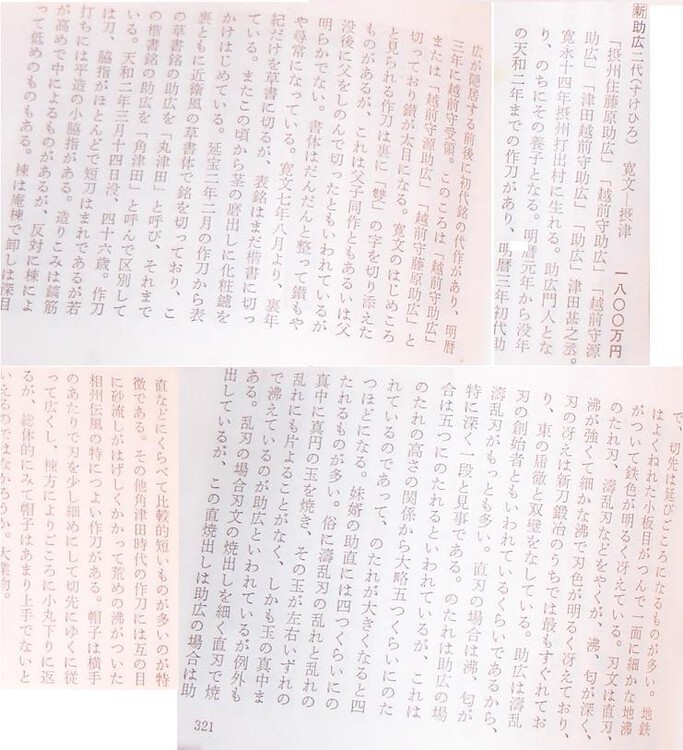 新 助広二代(すけひろ) 寛文―摂津
一八〇〇万円
「摂州住藤原助広」「越前守助広」「越前守源
助広」「津田越前守助広」「助広」津田甚之丞。
寛永十四年摂州打出村に生れる。助広門人とな
り、のちにその養子となる。明暦元年から没年
の天和二年までの作刀があり、明暦三年初代助
広が隠居する前後に初代銘の代作があり、明暦
三年に越前守受領。このころは「越前守助広」
または「越前守源助広」「越前守藤原助広」と
切っており鏨が太目になる。寛文のはじめころ
と見られる作刀は裏に「雙」の字を切り添えた
ものがあるが、これは父子同作ともあるいは父
没後に父をしのんで切ったともいわれているが
明らかでない。書体はだんだんと整って鏨もや
や尋常になっている。寛文七年八月より、裏年
紀だけを草書に切るが、表銘はまだ楷書に切っ
ている。またこの頃から茎の磨出しに化粧鑢を
かけはじめている。延宝二年二月の作刀から表
裏ともに近衛風の草書体で銘を切っており、こ
の草書銘の助広を「丸津田」と呼び、それまで
の楷書銘の助広を「角津田」と呼んで区別して
いる。天和二年三月十四日没、四十六歳。作刀
は刀、脇指がほとんどで短刀はまれであるが若
打ちには平造の小脇指がある。造りこみは鎬筋
が高めで中によるものがあるが、反対に棟によ
って低めのものもある。棟は庵棟で卸しは深目
で、切先は延びごころになるものが多い。地鉄
はよくねれた小板目がつんで一面に細かな地沸
がついて鉄色が明るく冴えている。刃文は直刃、
のたれ刃、濤乱刃などをやくが、沸、匂が深く、
沸が強くて細かな沸で刃色が明るく冴えており、
刃の冴えは新刀鍛冶のうちでは最もすぐれてお
り、東の虎徹と双璧をなしている。助広は濤乱
刃の創始者ともいわれているくらいであるから、
濤乱刃がもっとも多い。直刃の場合は沸、匂が
特に深く一段と見事である。のたれは助広の場
合は五つにのたれるといわれているが、これは
のたれの高さの関係から大略五つくらいにのた
れているのであって、のたれが大きくなると四
つほどになる。妹婿の助直には四つくらいにの
たれるものが多い。俗に濤乱刃の乱れと乱れの
真中に真円の玉を焼き、その玉が左右いずれの
乱れにも片よることがなく、しかも玉の真中ま
で沸えているのが助広といわれているが例外も
ある。乱刃の場合刃文の焼出しを細く直刃で焼
出しているが、この直焼出しは助広の場合は助
直などにくらべて比較的短いものが多いのが特
徴である。その他角津田時代の作刀には互の目
に砂流しがはげしくかかって荒めの沸がついた
相州伝風の特につよい作刀がある。帽子は横手
のあたりで刃を少し細めにして切先にゆくに従
って広くし、棟方によりごころに小丸下りに返
るが、総体的にみて帽子はあまり上手でないと
いえるのではなかろうか。大業物。
321